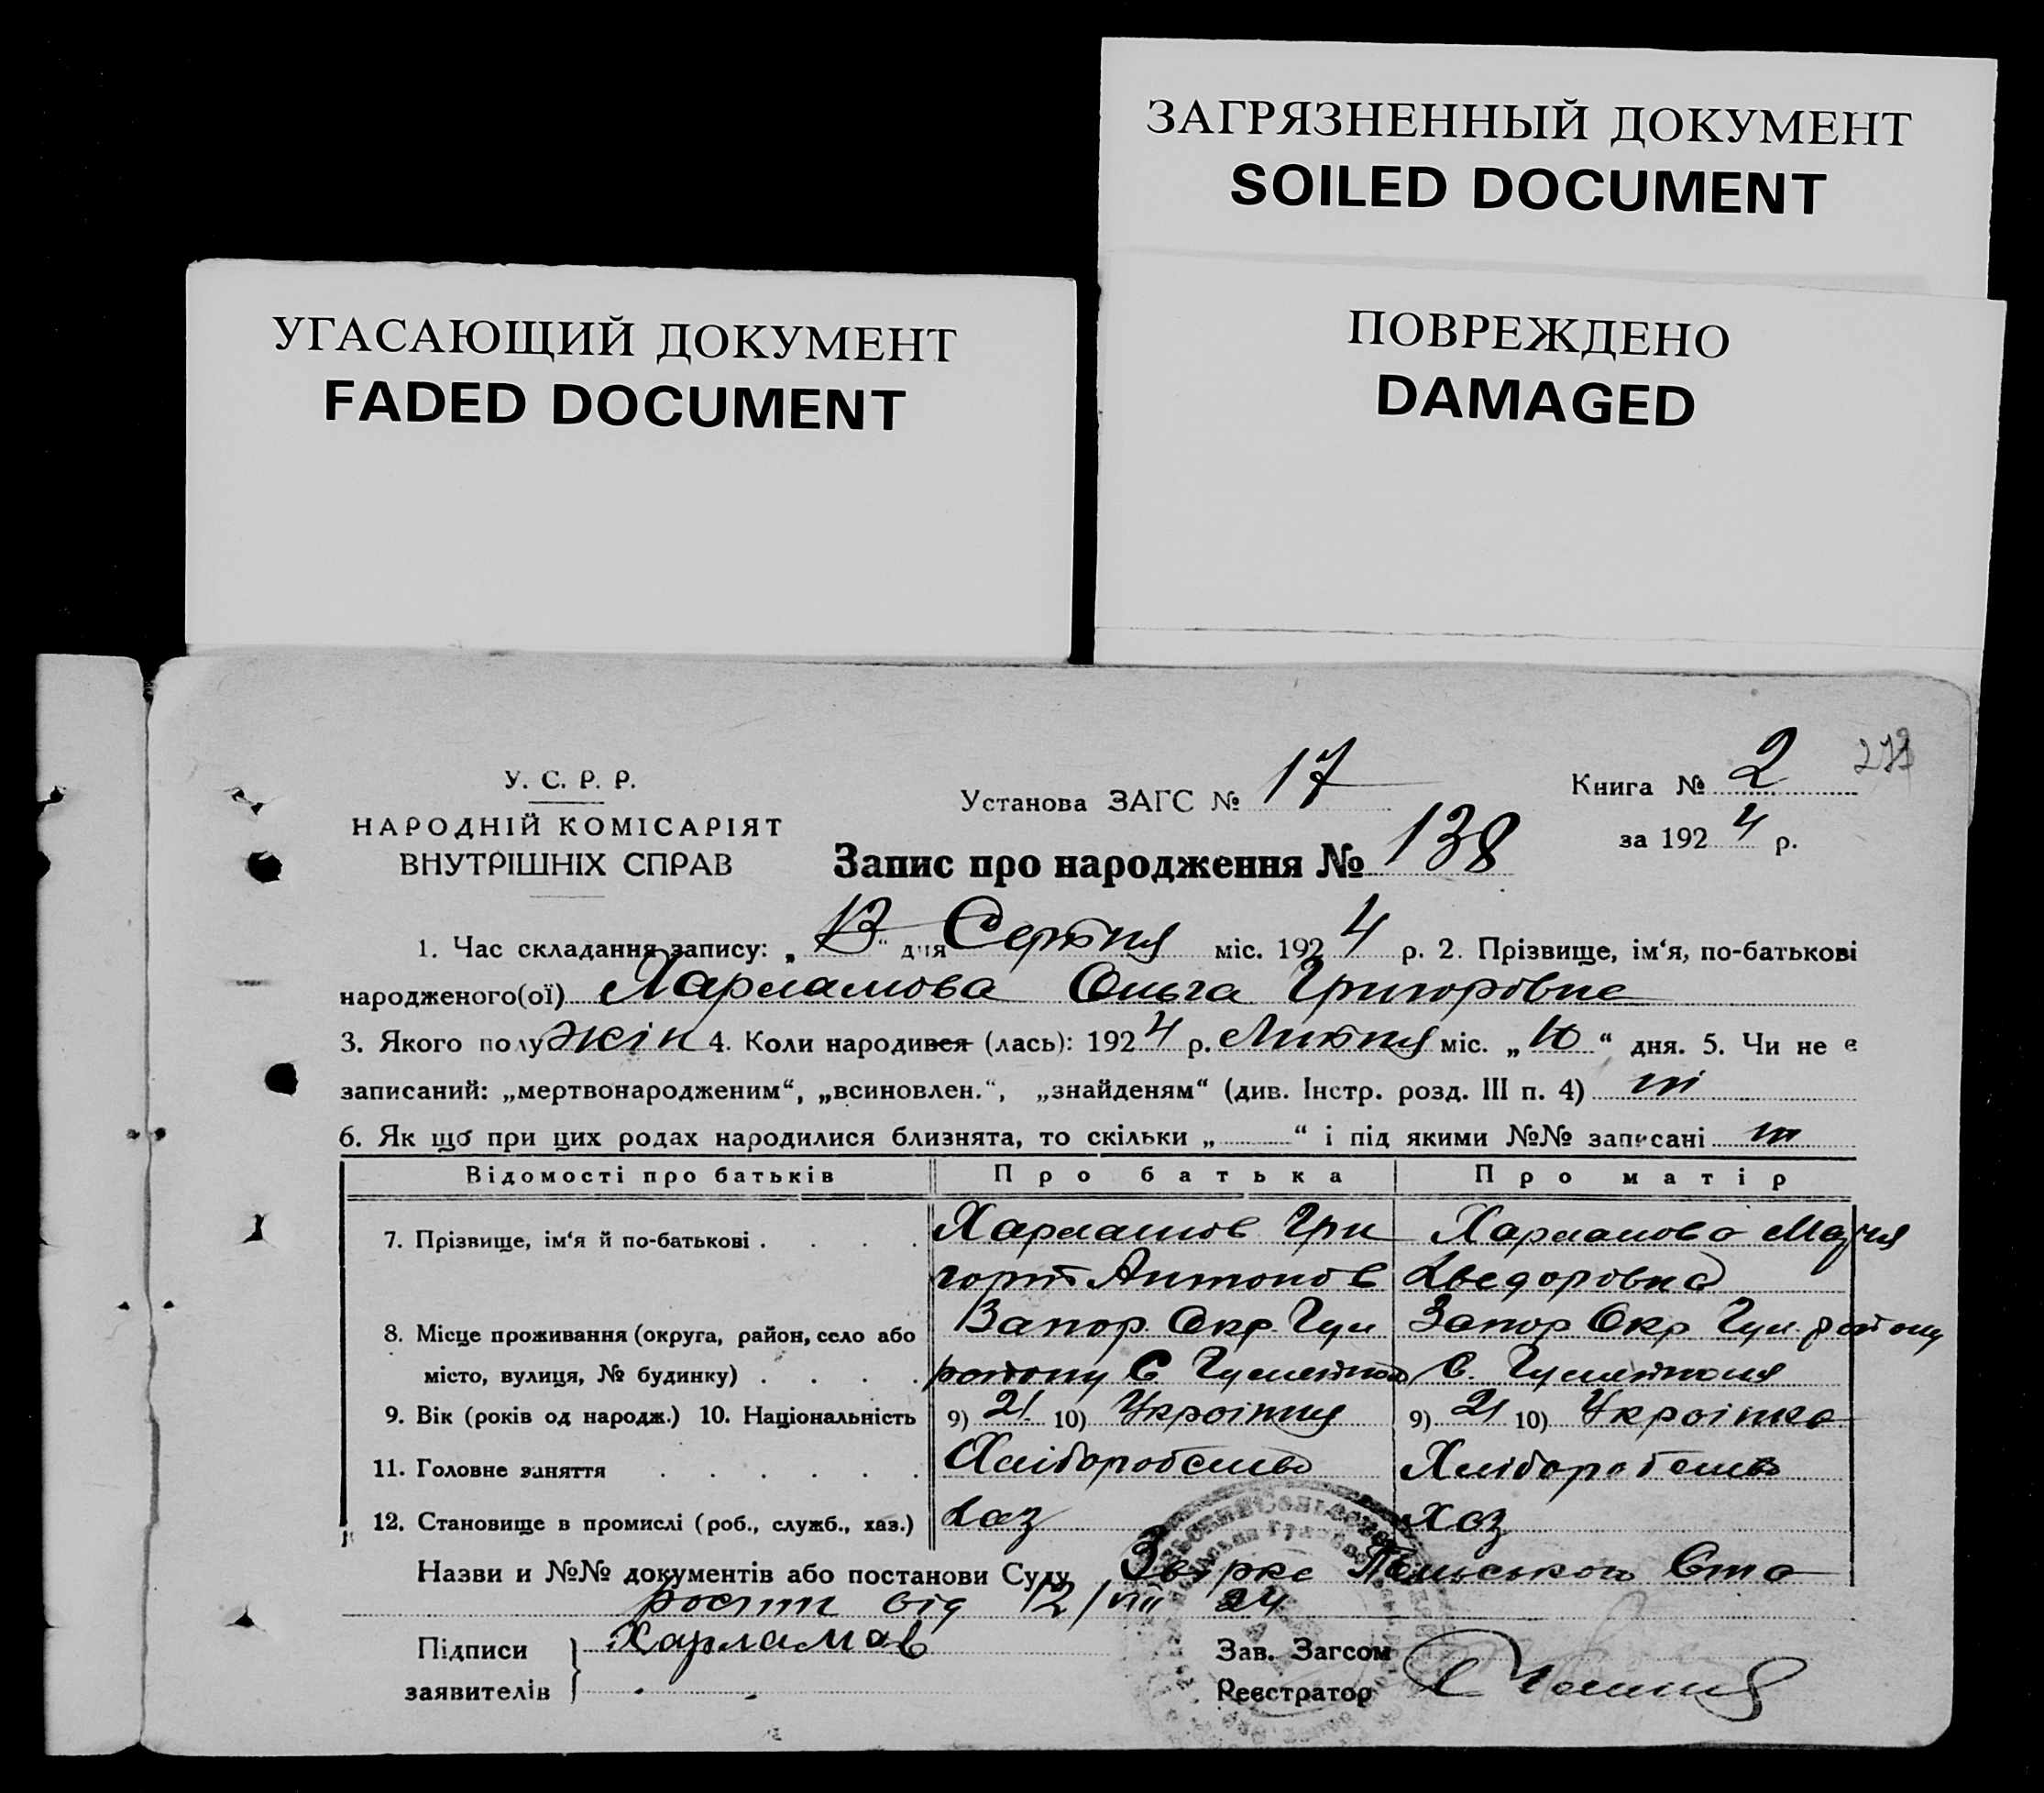 ЗАГРЯЗНЕННЫЙ ДОКУМЕНТ
SOILED DOCUMENT
УГАСАЮЩИЙ ДОКУМЕНТ
FADED DOCUMENT
ПОВРЕЖДЕНО
DAMAGED
У. С. Р. Р.
НАРОДНІЙ КОМІСАРІЯТ
ВНУТРІШНІХ СПРАВ
Установа ЗАГС № 17
Книга № 2
за 1924 р.
Запис про народження № 138
1. Час складання запису: „13“ дня Серпня міс. 1924 р. 2. Прізвище, ім‘я, по-батькові
народженого(ої) Харламова Ольга Григоровна
3. Якого полу жін 4. Коли народився (лась): 1924 р. Липня міс. „10“ дня. 5. Чи не є
записаний: „мертвонародженим“, „всиновлен.“, „знайденям“ (див. Інстр. розд. III п. 4) ні
6. Як що при цих родах народилися близнята, то скільки „ “ і під якими №№ записані ні
Відомості про батьків Про батька Про матір
7. Прізвище, ім‘я й по-батькові . . . . Харламов Гри Харламова Марія
горій Антонов Хведоровна
8. Місце проживання (округа, район, село або Запор. Окр. Гул Запор Окр Гул. району
місто, вулиця, № будинку) . . . . району С Гуляйполя С. Гуляйполя
9. Вік (років од народж.) 10. Національність 9) 21 10) Україння 9) 21 10) Українка
11. Головне заняття . . . . . . Хліборобство Хліборобство
12. Становище в промислі (роб., служб., хаз.) хаз хаз
Назви и №№ документів або постанови Суду Польського Ста
рости від 12/VIII 24
Підписи Харламов Зав. Загсом
заявителів Реєстратор